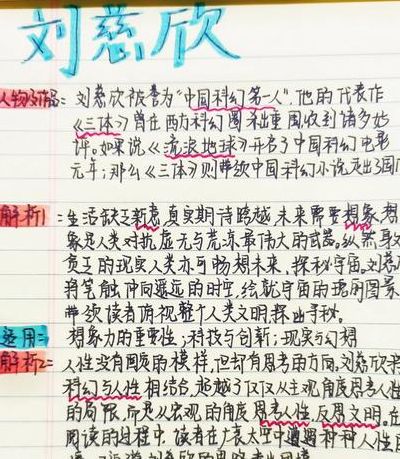 刘慈欣
人物及作品:刘慈欣被誉为“中国科幻第一人”.他的代表作
《三体》曾在西方科幻圈中和出重围,收到诸多好
评。如果说《流浪地球》开启了中国科幻电影
元年;那么《三体》则带领中国科幻小说走出了国门
解析1:生活缺乏新意,真实期待跨越,未来需要想象.想
象是人类对抗虚无与荒凉最伟大的武器。纵然身处
贫乏的现实人类亦可畅想未来,探秘宇宙,刘慈欣
将笔触伸向遥远的时空,绘就宇宙的瑰丽图景
带领读者俯视整个人类文明探出寻秘。
适用:想象力的重要性;科技与创新;现实与幻想
解析2:人性没有固定的模样,但却有思考的方向,刘慈欣将
科幻与人性相结合,超越了仅仅从主观角度思考人性
的局限,而是从宏观的角度思考人性,反思文明.在
阅读的过程中,读者在广袤太空中遭遇种种人性